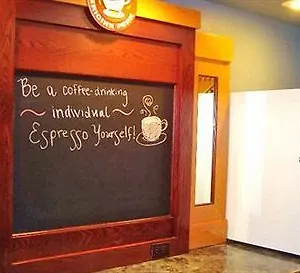 Be a coffee-drinking
~ individual ~
Espresso Yourself!